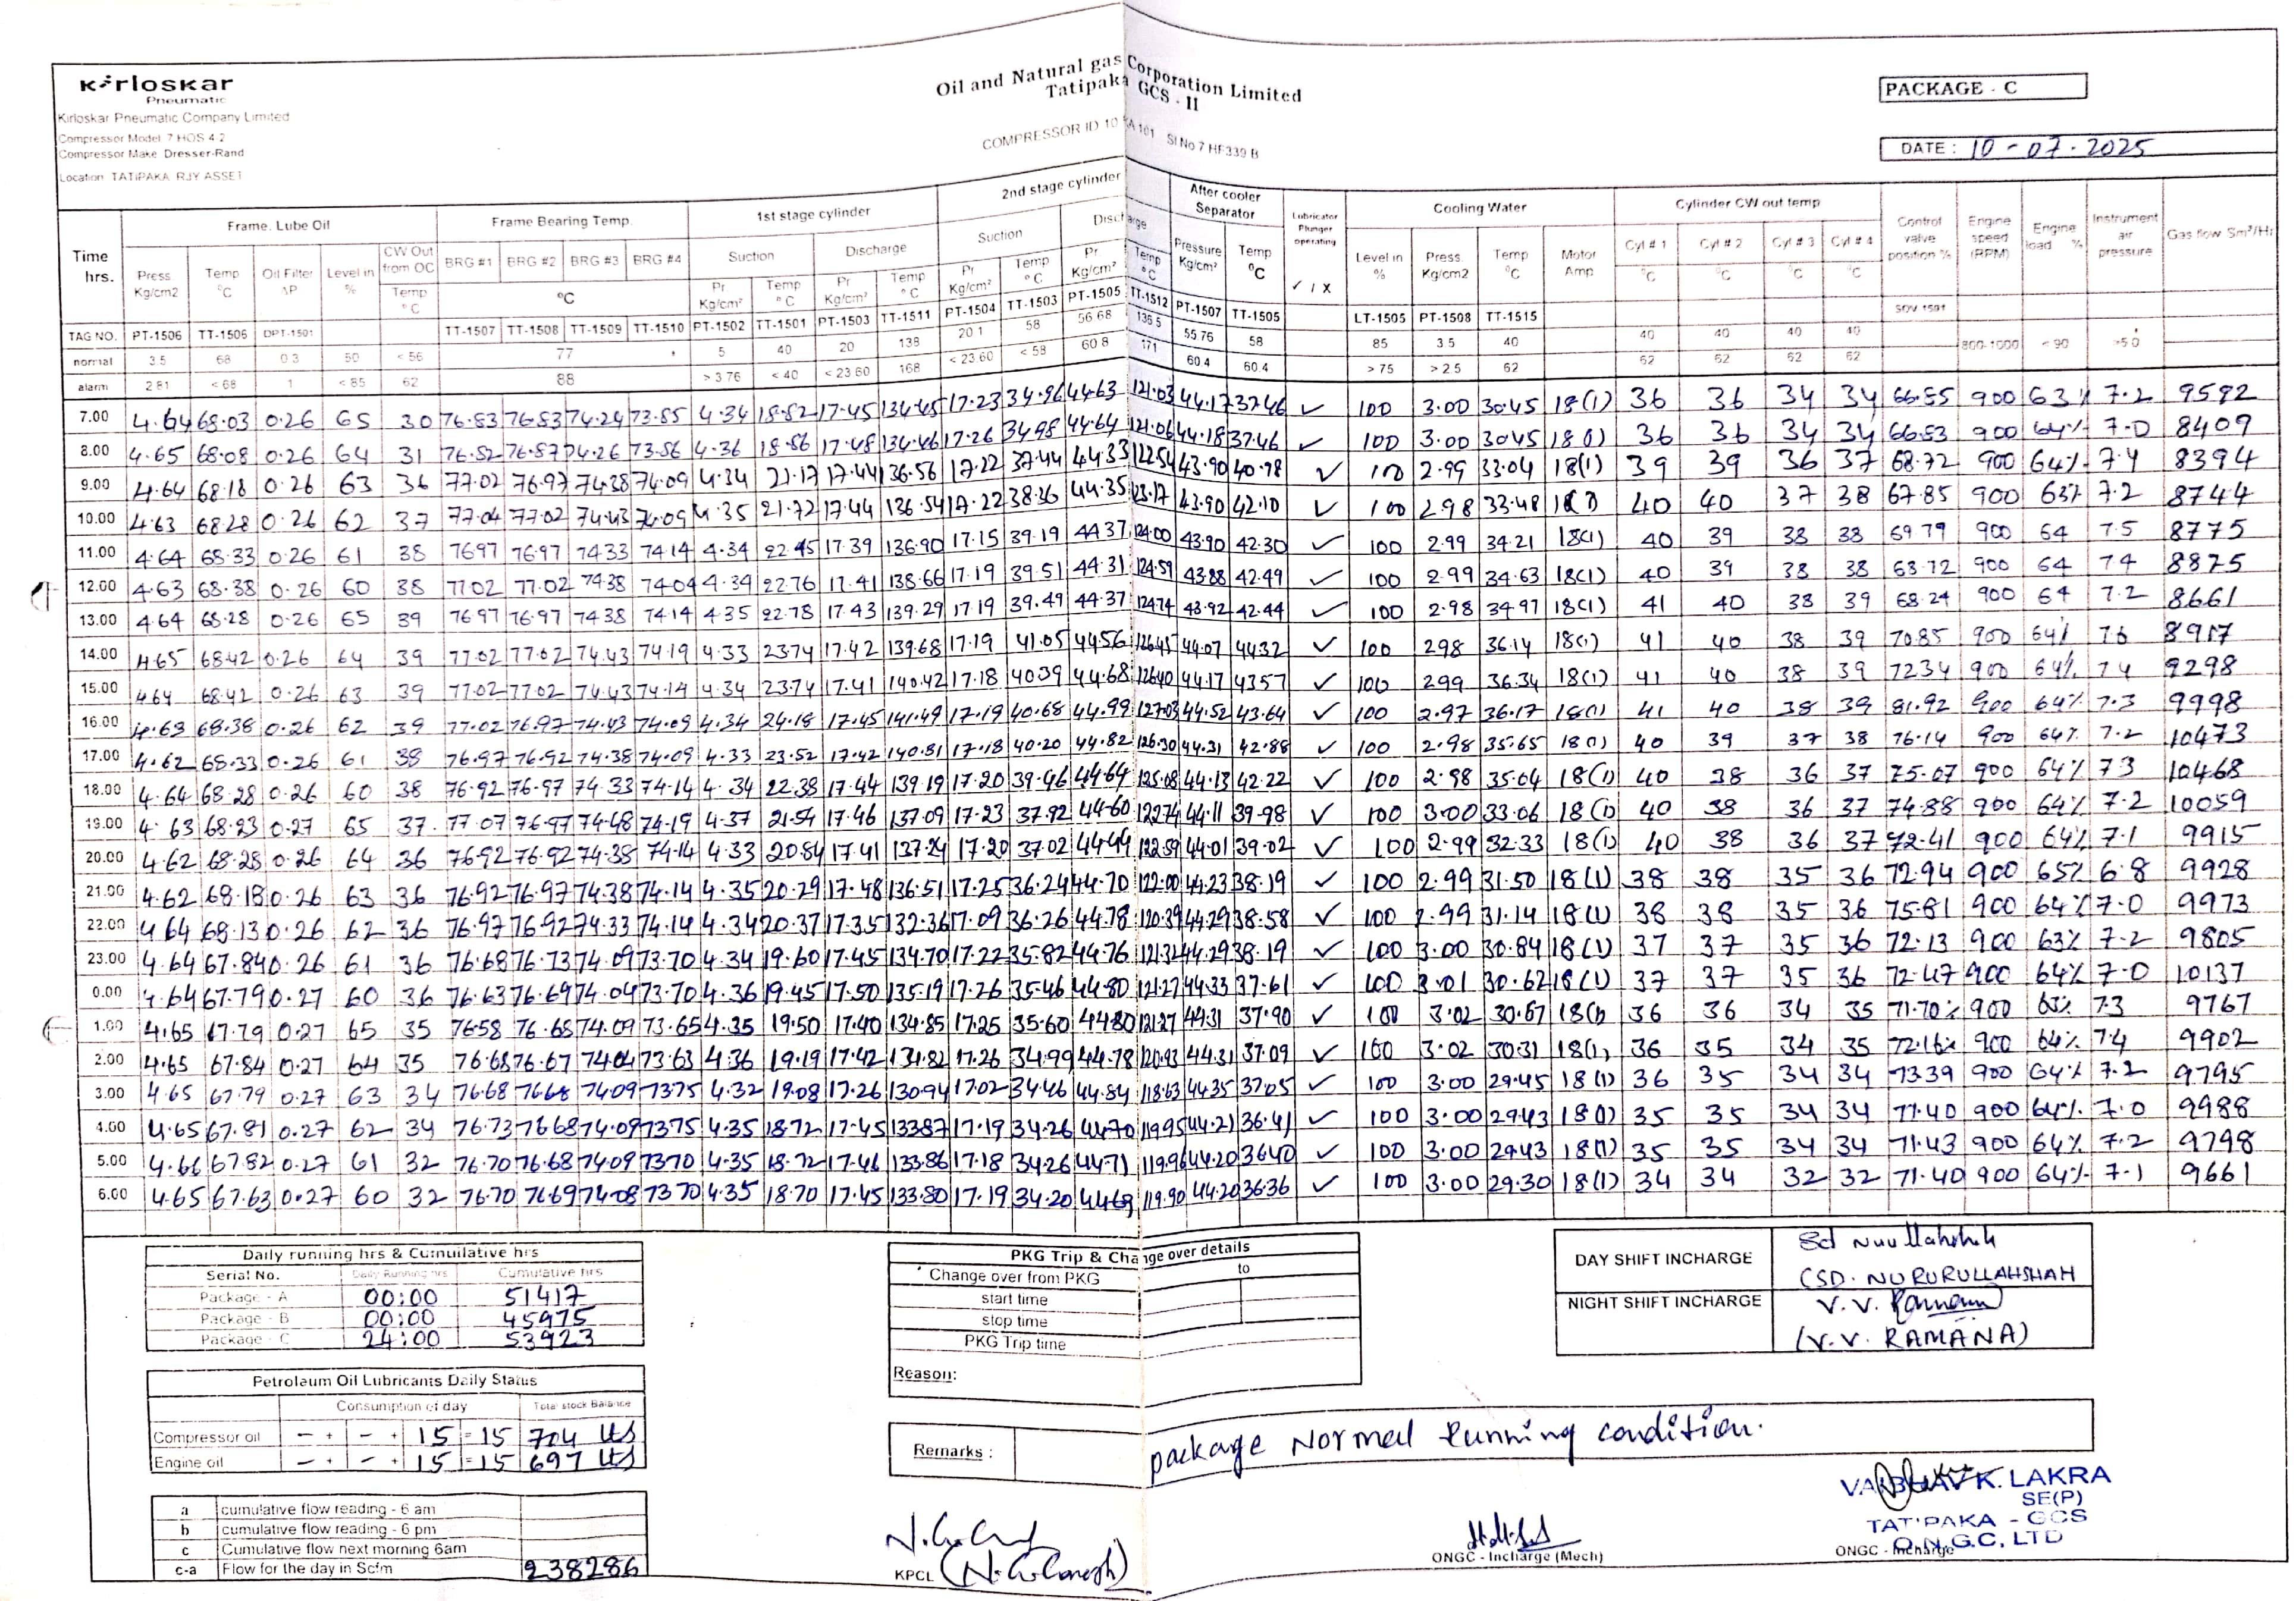 Kirloskar
Pneumatic
Kirloskar Pneumatic Company Limited
Compressor Model 7 HOS 4 2
Compressor Make Dresser-Rand
Location TATIPAKA RJY ASSET
Oil and Natural gas Corporation Limited
Tatipaka GCS - II
COMPRESSOR ID 10 KA 101 Sl No 7 HF339 B
PACKAGE - C
DATE : 10-07-2025
Time hrs. Frame. Lube Oil Frame Bearing Temp. 1st stage cylinder 2nd stage cylinder After cooler Separator Lubricator Plunger operating Cooling Water Cylinder CW out temp Control valve position % Engine speed (RPM) Engine load % Instrument air pressure Gas flow Sm³/Hr
Suction Discharge Suction Discharge
Press Kg/cm2 Temp °C Oil Filter ΔP Level in % CW Out from OC Temp °C BRG #1 BRG #2 BRG #3 BRG #4 °C Pr Kg/cm² Temp °C Pr Kg/cm² Temp °C Pr Kg/cm² Temp °C Pr Kg/cm² Temp °C Pressure Kg/cm² Temp °C ✓ / X Level in % Press. Kg/cm2 Temp °C Motor Amp Cyl # 1 °C Cyl # 2 °C Cyl # 3 °C Cyl # 4 °C
TAG NO. PT-1506 TT-1506 DPT-1501 TT-1507 TT-1508 TT-1509 TT-1510 PT-1502 TT-1501 PT-1503 TT-1511 PT-1504 TT-1503 PT-1505 TT-1512 PT-1507 TT-1505 LT-1505 PT-1508 TT-1515 SOV 1501
normal 3.5 68 0.3 50 < 56 77 5 40 20 138 20.1 58 56.68 136.5 55.76 58 85 3.5 40 40 40 40 40 800-1000 < 90 >5.0
alarm 2.81 < 68 1 < 85 62 88 > 3.76 < 40 < 23.60 168 < 23.60 < 58 60.8 171 60.4 60.4 > 75 > 2.5 62 62 62 62 62
7.00 4.64 68.03 0.26 65 30 76.83 76.83 74.24 73.85 4.34 18.82 17.45 134.45 17.23 34.96 44.63 121.03 44.17 37.46 ✓ 100 3.00 30.45 18(1) 36 36 34 34 66.85 900 63% 7.2 9592
8.00 4.65 68.08 0.26 64 31 76.82 76.87 74.26 73.86 4.36 18.86 17.48 134.46 17.26 34.98 44.64 121.06 44.18 37.46 ✓ 100 3.00 30.45 18(1) 36 36 34 34 66.83 900 64% 7.0 8409
9.00 4.64 68.18 0.26 63 36 77.02 76.97 74.38 74.09 4.34 21.17 17.44 136.56 17.22 37.44 44.33 122.54 43.90 40.78 ✓ 100 2.99 33.04 18(1) 39 39 36 37 68.72 900 64% 7.4 8394
10.00 4.63 68.28 0.26 62 37 77.04 77.02 74.43 74.09 4.35 21.72 17.44 136.54 17.22 38.36 44.35 123.17 43.90 42.10 ✓ 100 2.98 33.48 40 40 37 38 67.85 900 63% 7.2 8744
11.00 4.64 68.33 0.26 61 38 76.97 76.97 74.33 74.14 4.34 22.45 17.39 136.90 17.15 39.19 44.37 124.00 43.90 42.30 ✓ 100 2.99 34.21 18(1) 40 39 38 38 69.79 900 64 7.5 8775
12.00 4.63 68.38 0.26 60 38 77.02 77.02 74.38 74.04 4.34 22.76 17.41 138.66 17.19 39.51 44.31 124.59 43.88 42.49 ✓ 100 2.99 34.63 18(1) 40 39 38 38 68.72 900 64 7.4 8825
13.00 4.64 68.28 0.26 65 39 76.97 76.97 74.38 74.14 4.35 22.78 17.43 139.29 17.19 39.49 44.37 124.74 43.92 42.44 ✓ 100 2.98 34.97 18(1) 41 40 38 39 68.24 900 64 7.2 8661
14.00 4.65 68.42 0.26 64 39 77.02 77.02 74.43 74.19 4.33 23.74 17.42 139.68 17.19 41.05 44.56 126.45 44.07 44.32 ✓ 100 2.98 36.14 18(1) 41 40 38 39 70.85 900 64% 7.6 8917
15.00 4.64 68.42 0.26 63 39 77.02 77.02 74.43 74.14 4.34 23.74 17.41 140.42 17.18 40.39 44.68 126.40 44.17 43.57 ✓ 100 2.99 36.34 18(1) 41 40 38 39 72.34 900 64% 7.4 9298
16.00 4.63 68.38 0.26 62 39 77.02 76.97 74.43 74.09 4.34 24.18 17.45 141.49 17.19 40.68 44.99 127.03 44.52 43.64 ✓ 100 2.97 36.17 18(1) 41 40 38 39 81.92 900 64% 7.3 9998
17.00 4.62 68.33 0.26 61 38 76.97 76.92 74.38 74.09 4.33 23.52 17.42 140.81 17.18 40.20 44.82 126.30 44.31 42.88 ✓ 100 2.98 35.65 18(1) 40 39 37 38 76.14 900 64% 7.2 10473
18.00 4.64 68.28 0.26 60 38 76.92 76.97 74.33 74.14 4.34 22.38 17.44 139.19 17.20 39.46 44.64 125.08 44.13 42.22 ✓ 100 2.98 35.04 18(1) 40 38 36 37 75.07 900 64% 7.3 10468
19.00 4.63 68.23 0.27 65 37 77.07 76.97 74.48 74.19 4.37 21.54 17.46 137.09 17.23 37.92 44.60 122.74 44.11 39.98 ✓ 100 3.00 33.06 18(1) 40 38 36 37 74.88 900 64% 7.2 10059
20.00 4.62 68.28 0.26 64 36 76.92 76.92 74.38 74.14 4.33 20.84 17.41 137.24 17.20 37.02 44.49 122.59 44.01 39.02 ✓ 100 2.99 32.33 18(1) 40 38 36 37 72.41 900 64% 7.1 9915
21.00 4.62 68.18 0.26 63 36 76.92 76.97 74.38 74.14 4.35 20.29 17.48 136.51 17.25 36.24 44.70 122.00 44.23 38.19 ✓ 100 2.99 31.50 18(1) 38 38 35 36 72.94 900 65% 6.8 9928
22.00 4.64 68.13 0.26 62 36 76.97 76.92 74.33 74.14 4.34 20.37 17.35 132.36 17.09 36.26 44.78 120.39 44.29 38.58 ✓ 100 2.99 31.14 18(1) 38 38 35 36 75.81 900 64% 7.0 9973
23.00 4.64 67.84 0.26 61 36 76.68 76.73 74.09 73.70 4.34 19.60 17.45 134.70 17.22 35.82 44.76 121.32 44.29 38.19 ✓ 100 3.00 30.84 18(1) 37 37 35 36 72.13 900 63% 7.2 9805
0.00 4.64 67.79 0.27 60 36 76.63 76.69 74.04 73.70 4.36 19.45 17.50 135.19 17.26 35.46 44.80 121.27 44.33 37.61 ✓ 100 3.01 30.62 18(1) 37 37 35 36 72.47 900 64% 7.0 10137
1.00 4.65 67.79 0.27 65 35 76.58 76.68 74.09 73.65 4.35 19.50 17.40 134.85 17.25 35.60 44.80 121.27 44.31 37.90 ✓ 100 3.02 30.67 18(1) 36 36 34 35 71.70% 900 63% 7.3 9767
2.00 4.65 67.84 0.27 64 35 76.68 76.67 74.04 73.63 4.36 19.19 17.42 131.82 17.26 34.99 44.78 120.93 44.31 37.09 ✓ 100 3.02 30.31 18(1) 36 35 34 35 72.16% 900 64% 7.4 9902
3.00 4.65 67.79 0.27 63 34 76.68 76.68 74.09 73.75 4.32 19.08 17.26 130.94 17.02 34.46 44.84 118.63 44.35 37.05 ✓ 100 3.00 29.45 18(1) 36 35 34 34 73.39 900 64% 7.2 9795
4.00 4.65 67.81 0.27 62 34 76.73 76.68 74.09 73.75 4.35 18.72 17.45 133.87 17.19 34.26 44.70 119.95 44.21 36.41 ✓ 100 3.00 29.43 18(1) 35 35 34 34 71.40 900 64% 7.0 9988
5.00 4.66 67.82 0.27 61 32 76.70 76.68 74.09 73.70 4.35 18.72 17.46 133.86 17.18 34.26 44.71 119.96 44.20 36.40 ✓ 100 3.00 29.43 18(1) 35 35 34 34 71.43 900 64% 7.2 9798
6.00 4.65 67.63 0.27 60 32 76.70 76.69 74.08 73.70 4.35 18.70 17.45 133.80 17.19 34.20 44.69 119.90 44.20 36.36 ✓ 100 3.00 29.30 18(1) 34 34 32 32 71.40 900 64% 7.1 9661
Daily running hrs & Cumuilative hrs
Serial No. Daily Running hrs Cumulative hrs
Package - A 00:00 51417
Package - B 00:00 45975
Package - C 24:00 53923
PKG Trip & Change over details
Change over from PKG to
start time
stop time
PKG Trip time
Reason:
DAY SHIFT INCHARGE
(SD. NURURULLAHSHAH
NIGHT SHIFT INCHARGE V. V. Ramana
(V.V. RAMANA)
Petroleum Oil Lubricants Daily Status
Consumption of day Total stock Balance
Compressor oil - + - + 15 = 15 704 lts
Engine oil - + - + 15 = 15 697 lts
Remarks : package Normal running condition.
a cumulative flow reading - 6 am
b cumulative flow reading - 6 pm
c Cumulative flow next morning 6am
c-a Flow for the day in Scfm 238286
KPCL (N. G. Ganesh)
ONGC - Incharge (Mech)
VAIBHAV K. LAKRA
SE(P)
TATIPAKA - GCS
O.N.G.C. LTD
ONGC - Incharge